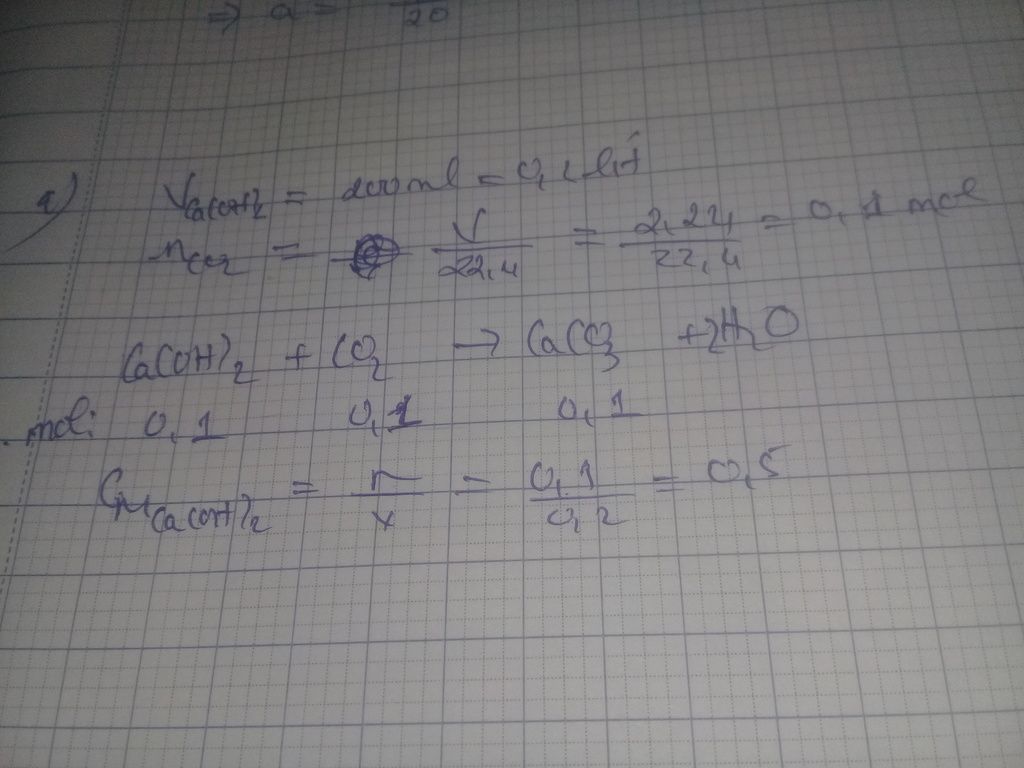 => a = /20
a) V Ca(OH)2 = 200ml = 0,2 lít
nCO2 = V/22,4 = 2,24/22,4 = 0,1 mol
Ca(OH)2 + CO2 → CaCO3 + H2O
mol: 0,1 0,1 0,1
CM Ca(OH)2 = n/V = 0,1/0,2 = 0,5